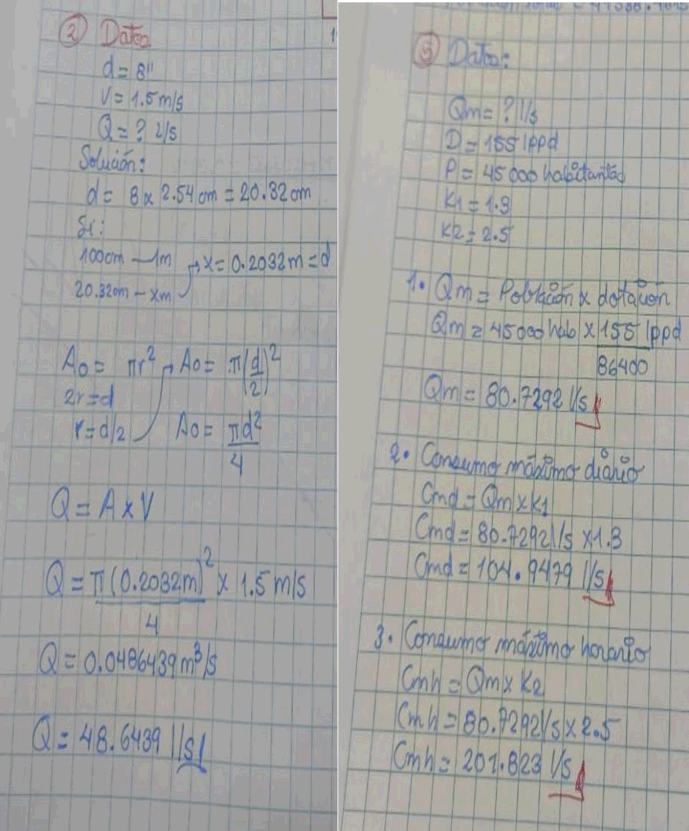 ② Datos
d = 8"
V = 1.5 m/s
Q = ? l/s
Solución:
d = 8 x 2.54 cm = 20.32 cm
Si:
100cm — 1m
x = 0.2032 m = d
20.32cm — xm
A₀ = πr² A₀ = π(d/2)²
2r = d
r = d/2 A₀ = πd²/4
Q = A x V
Q = π(0.2032m)²/4 x 1.5 m/s
Q = 0.0486439 m³/s
Q = 48.6439 l/s
Datos:
Qm = ? l/s
D = 155 lppd
P = 45000 habitantes
K1 = 1.3
K2 = 2.5
1. Qm = Población x dotación
Qm = 45000 hab x 155 lppd
86400
Qm = 80.7292 l/s
2. Consumo máximo diário
Cmd = Qm x K1
Cmd = 80.7292 l/s x 1.3
Cmd = 104.9479 l/s
3. Consumo máximo horario
Cmh = Qm x K2
Cmh = 80.7292 l/s x 2.5
Cmh = 201.823 l/s